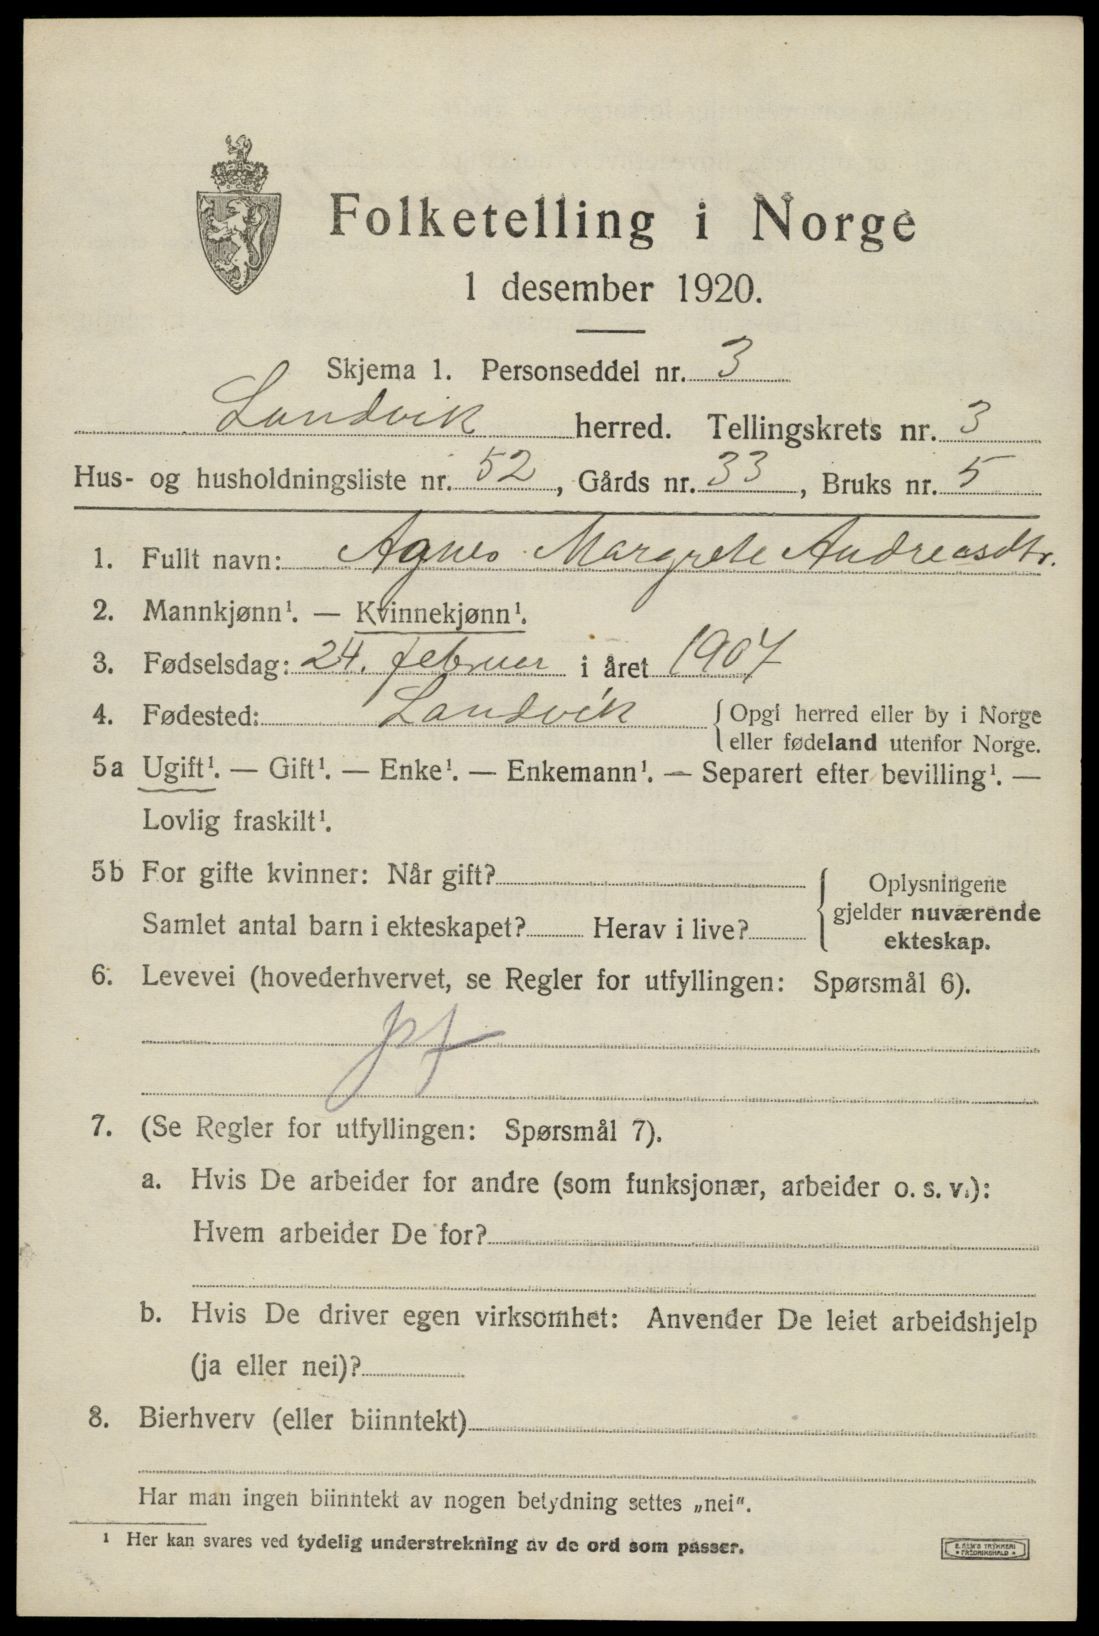 Folketelling i Norge
1 desember 1920.
Skjema 1. Personseddel nr. 3
Landvik herred. Tellingskrets nr. 3
Hus- og husholdningsliste nr. 52, Gårds nr. 33, Bruks nr. 5
1. Fullt navn: Agnes Margrete Andreasdtr.
2. Mannkjønn¹. — Kvinnekjønn¹.
3. Fødselsdag: 24. februar i året 1907
4. Fødested: Landvik { Opgi herred eller by i Norge
eller fødeland utenfor Norge.
5a Ugift¹. — Gift¹. — Enke¹. — Enkemann¹. — Separert efter bevilling¹. —
Lovlig fraskilt¹.
5b For gifte kvinner: Når gift?
Samlet antal barn i ekteskapet? Herav i live?
{ Oplysningene
gjelder nuværende
ekteskap.
6. Levevei (hovederhvervet, se Regler for utfyllingen: Spørsmål 6).
pf
7. (Se Regler for utfyllingen: Spørsmål 7).
a. Hvis De arbeider for andre (som funksjonær, arbeider o. s. v.):
Hvem arbeider De for?
b. Hvis De driver egen virksomhet: Anvender De leiet arbeidshjelp
(ja eller nei)?
8. Bierhverv (eller biinntekt)
Har man ingen biinntekt av nogen betydning settes „nei“.
¹ Her kan svares ved tydelig understrekning av de ord som passer.
FREDRIKSHALD